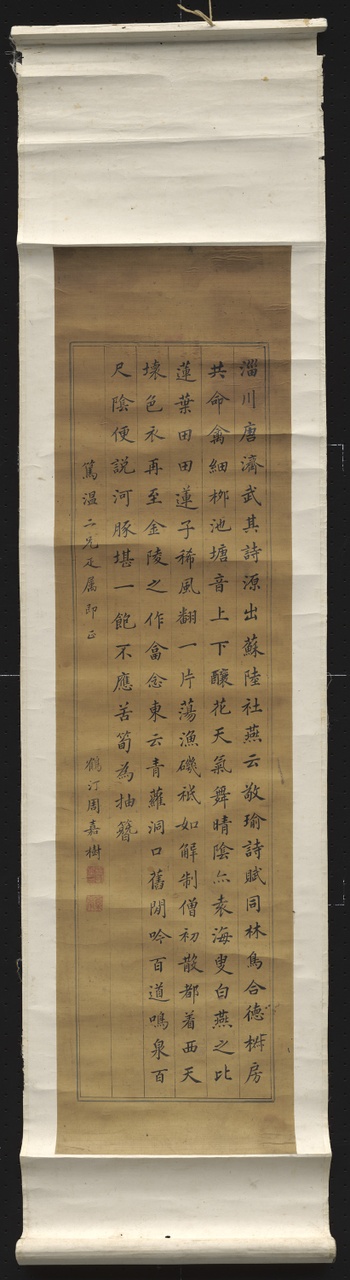 淄川唐濟武其詩源出蘇陸社燕云敬瑜詩賦同林鳥合德椒房
共命禽細栁池塘音上下釀花天氣舞晴陰亦袁海叟白燕之比
蓮葉田田蓮子稀風翻一片蕩漁磯袛如解制僧初散都着西天
壊色衣再至金陵之作畣念東云青蘿洞口舊閒吟百道鳴泉百
尺陰便説河豚堪一飽不應苦筍為抽簪
篤温二兄疋属即正
鶴汀周嘉樹